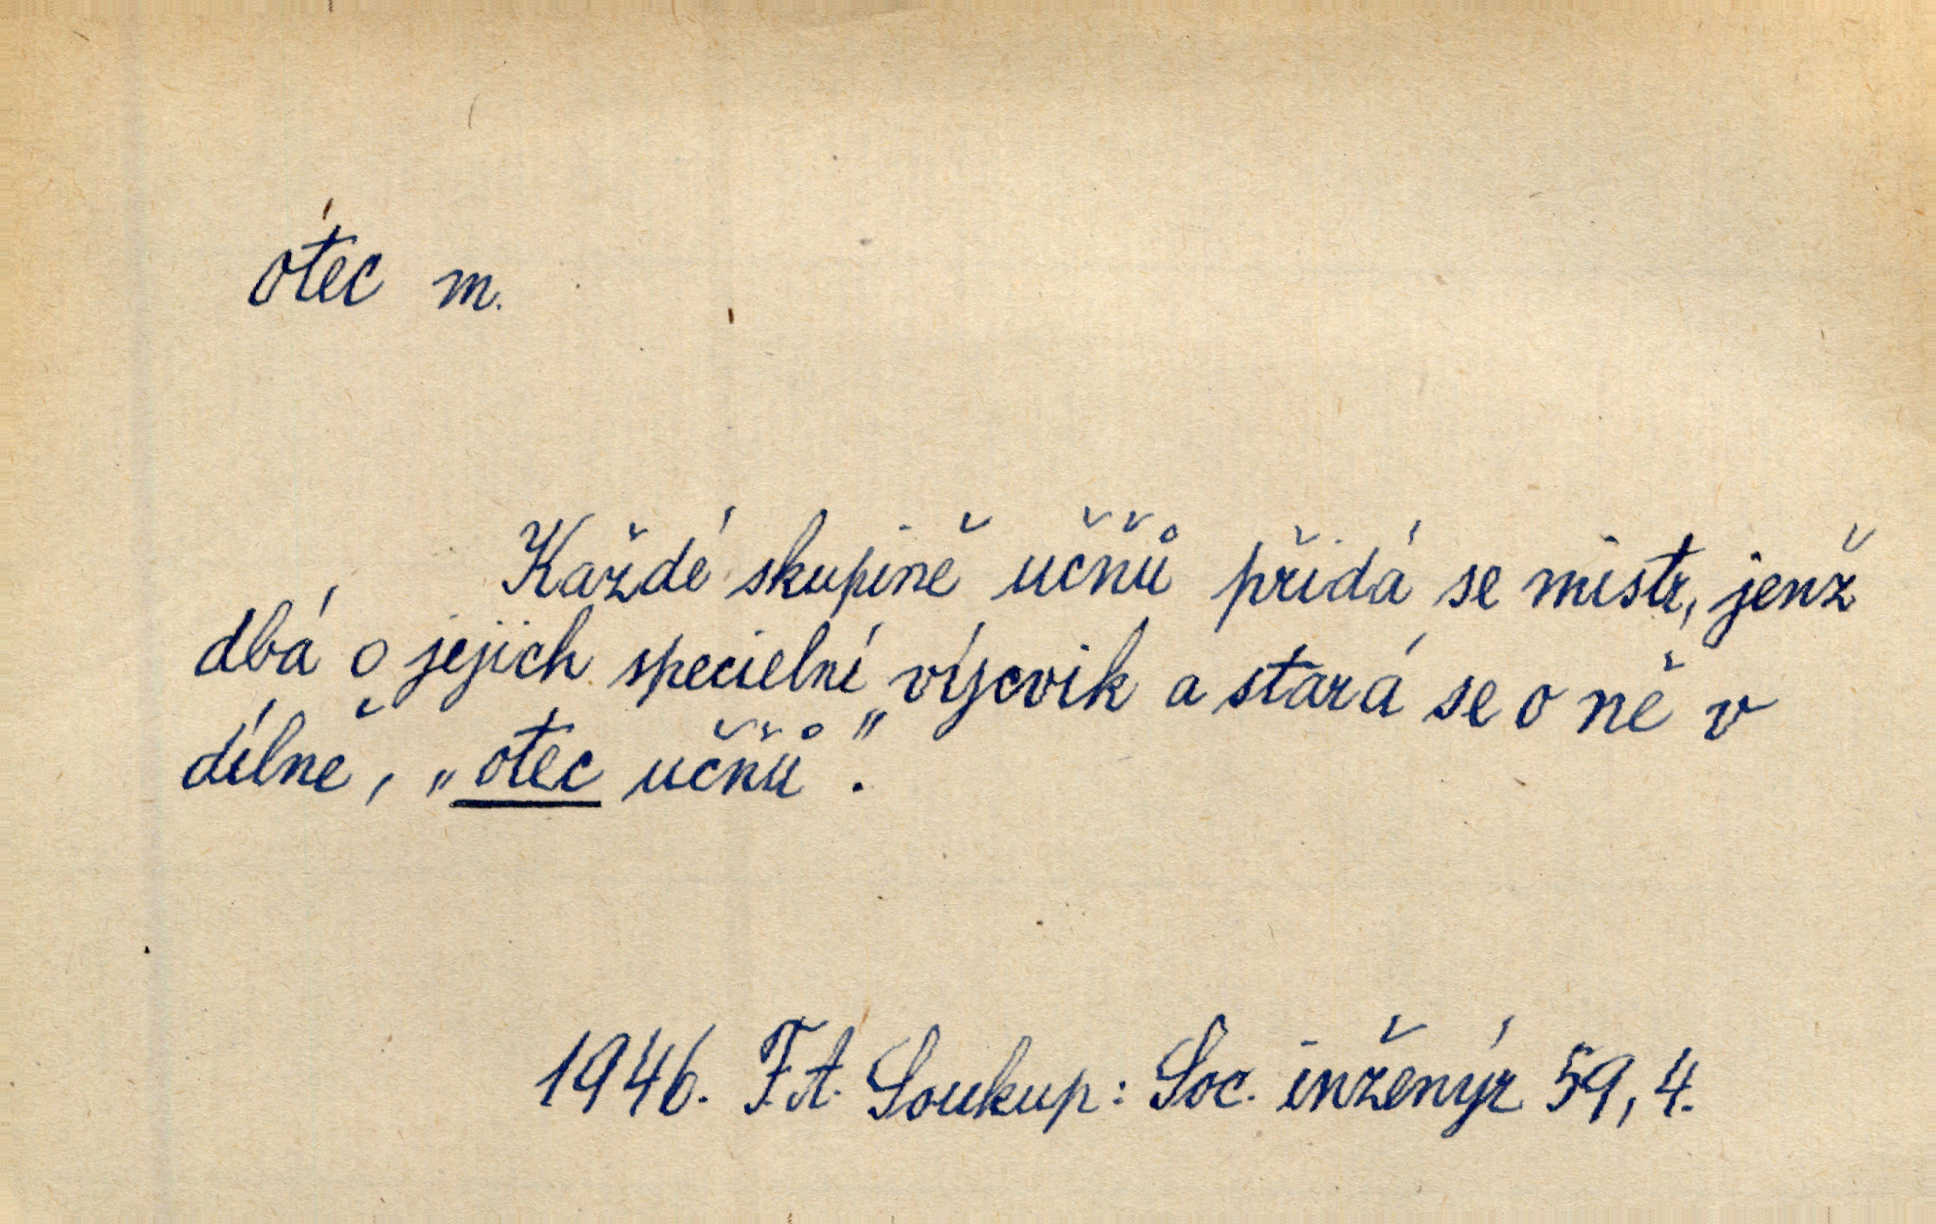 otec m.
Každé skupině učňů přidá se mistr, jenž
dbá o jejich specielní výcvik a stará se o ně v
dílně, „otec učňů".
1946. F.A. Soukup: Soc. inženýr 59, 4.